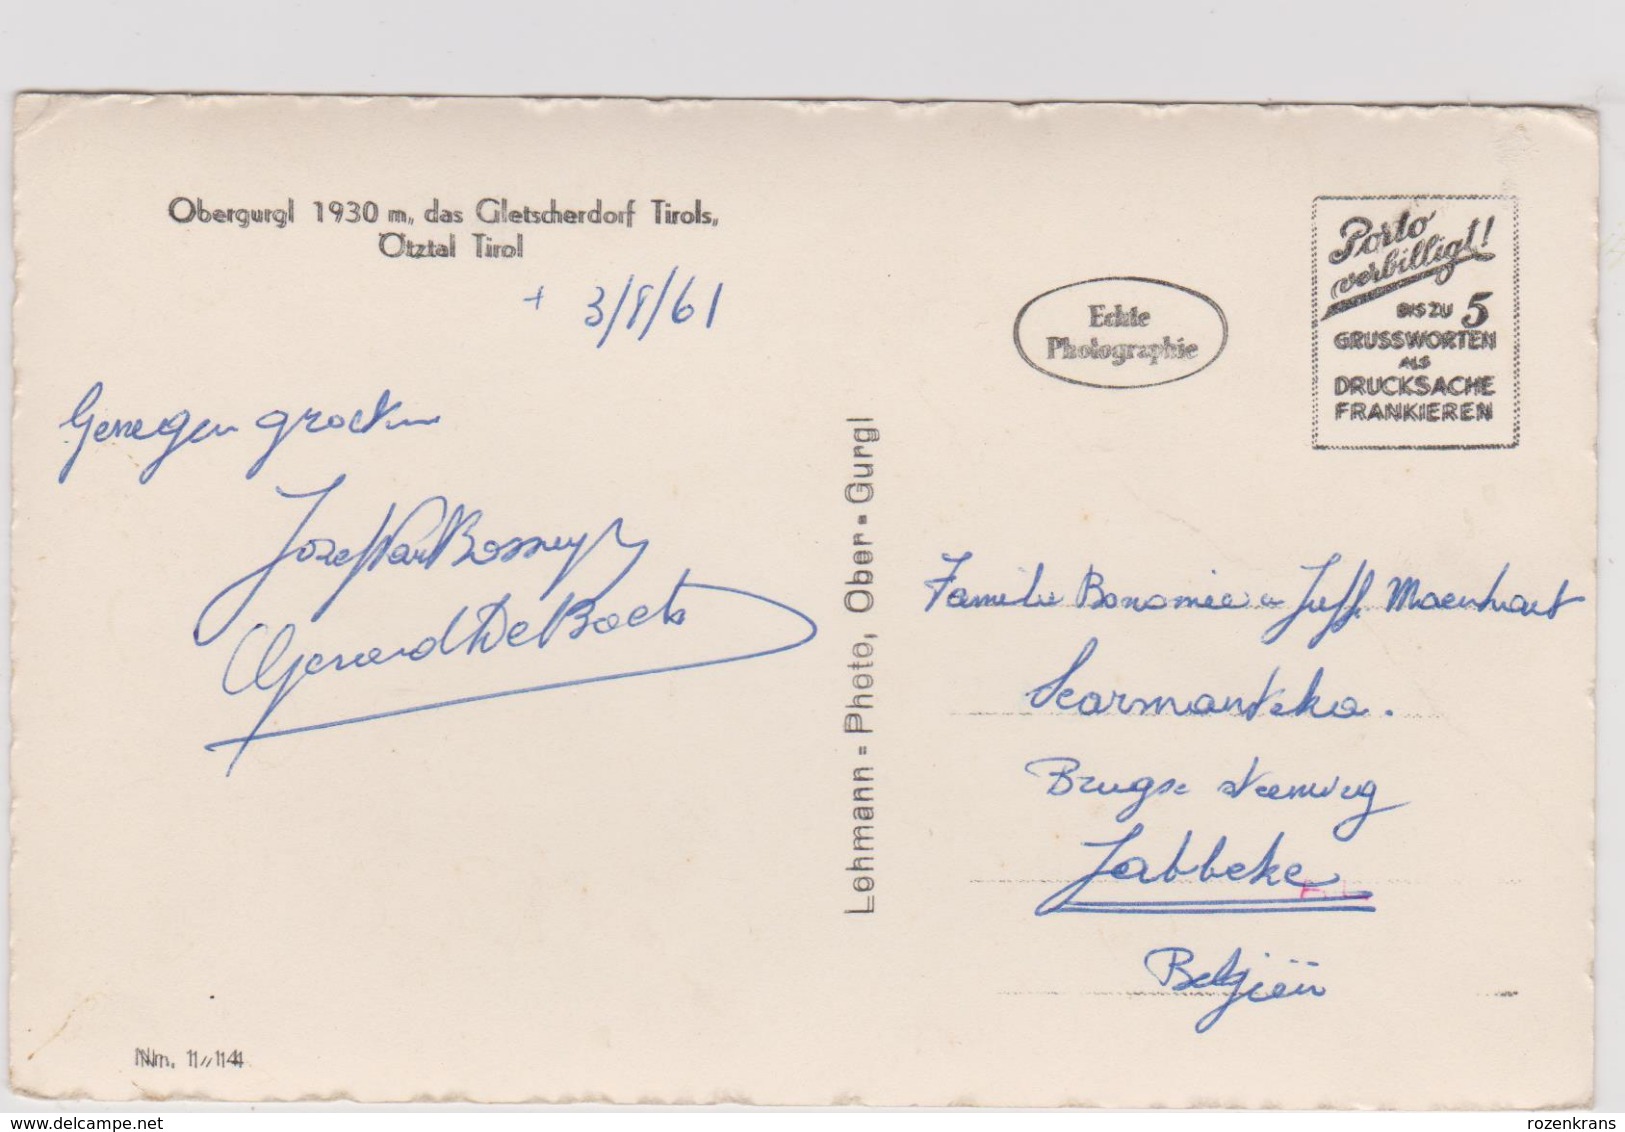 Obergurgl 1930 m, das Gletscherdorf Tirols,
Ötztal Tirol
+ 3/8/61
Genegen groeten
Jozef Van Bossuyt
Gerard De Boets
Nm. 1/14
Lohmann = Photo, Ober = Gurgl
Echte
Photographie
Porto
verbilligt!
BIS ZU 5
GRUSSWORTEN
ALS
DRUCKSACHE
FRANKIEREN
Familie Bonomie Juff. Maenhaut
Brugse steenweg
Jabbeke
België
delcampe.net
rozenkrans